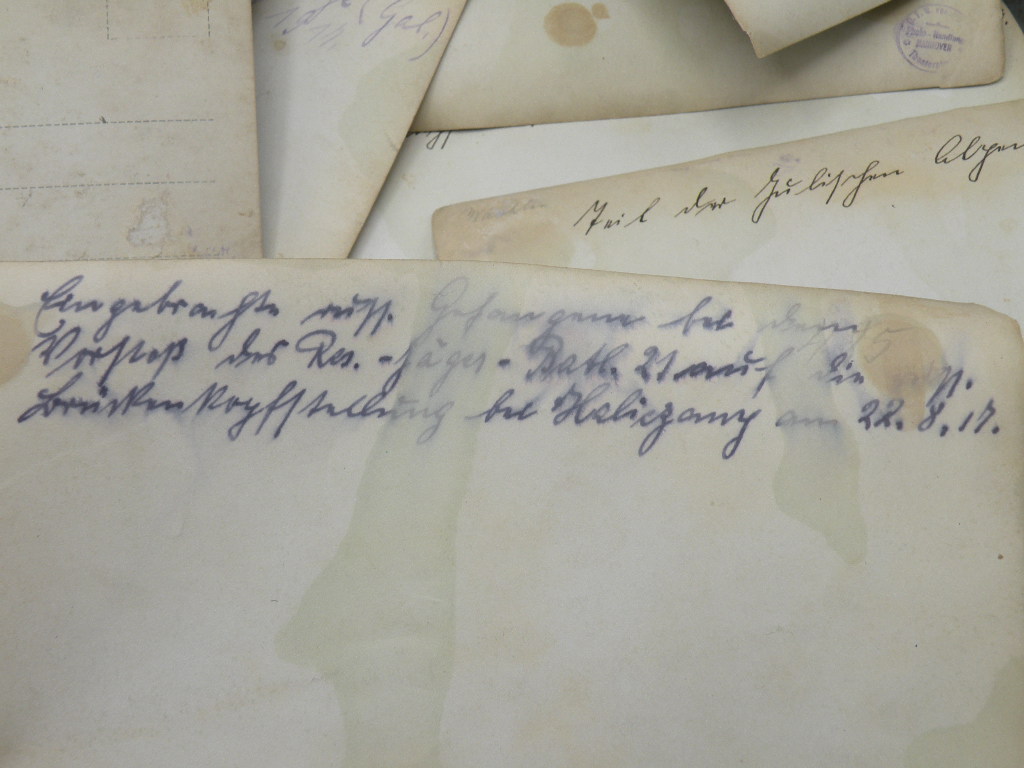 (Gal.)
Teil der Julischen Alpen
Eingebrachte russ. Gefangene bei dem
Vorstoß des Res.-Jäger-Batl. 21 auf die russ.
Brückenkopfstellung bei am 22.8.17.